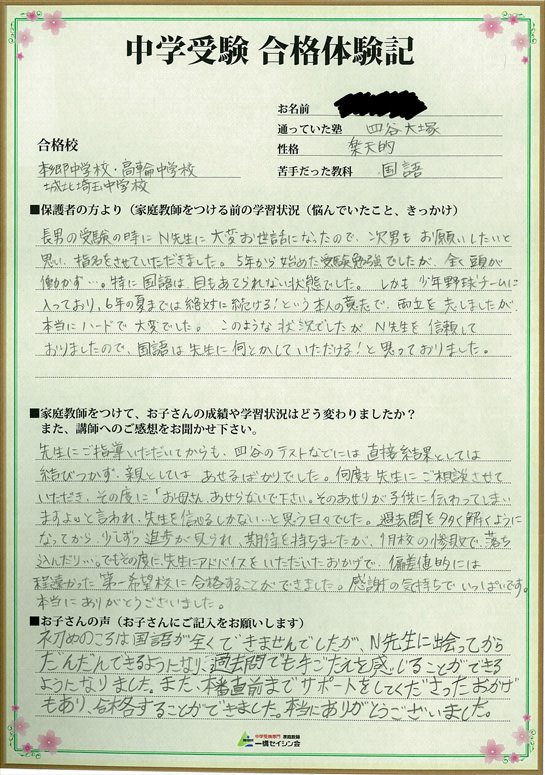 中学受験 合格体験記
お名前
通っていた塾 四谷大塚
性格 楽天的
苦手だった教科 国語
合格校
本郷中学校・高輪中学校
城北埼玉中学校
■保護者の方より（家庭教師をつける前の学習状況（悩んでいたこと、きっかけ）
長男の受験の時にN先生に大変お世話になったので、次男もお願いしたいと
思い、指名をさせていただきました。5年から始めた受験勉強でしたが、全く頭が
働かず…。特に国語は、目もあてられない状態でした。しかも少年野球チームに
入っており、6年の夏までは絶対に続ける！という本人の意志で、両立を志しましたが、
本当にハードで大変でした。このような状況でしたがN先生を信頼して
おりましたので、国語は先生に何とかしていただける！と思っておりました。
■家庭教師をつけて、お子さんの成績や学習状況はどう変わりましたか？
また、講師へのご感想をお聞かせ下さい。
先生にご指導いただいてからも、四谷のテストなどには直接結果としては
結びつかず、親としてはあせるばかりでした。何度も先生にご相談させて
いただき、その度に「お母さん、あせらないで下さい。そのあせりが子供に伝わってしまい
ますよ」と言われ、先生を信じるしかない…と思う日々でした。過去問を多く解くように
なってから、少しずつ進歩が見られ、期待を持ちましたが、1月校の惨敗で、落ち
込んだり…。でもその度に、先生にアドバイスをいただいたおかげで、偏差値的には
程遠かった"第一希望校に合格することができました。感謝の気持ちでいっぱいです。
本当にありがとうございました。
■お子さんの声（お子さんにご記入をお願いします）
初めのころは国語が全くできませんでしたが、N先生に出会ってから
だんだんできるようになり、過去問でも手ごたえを感じることができる
ようになりました。また、本番直前までサポートをしてくださったおかげ
もあり、合格することができました。本当にありがとうございました。
中学受験専門 家庭教師
一橋セイシン会